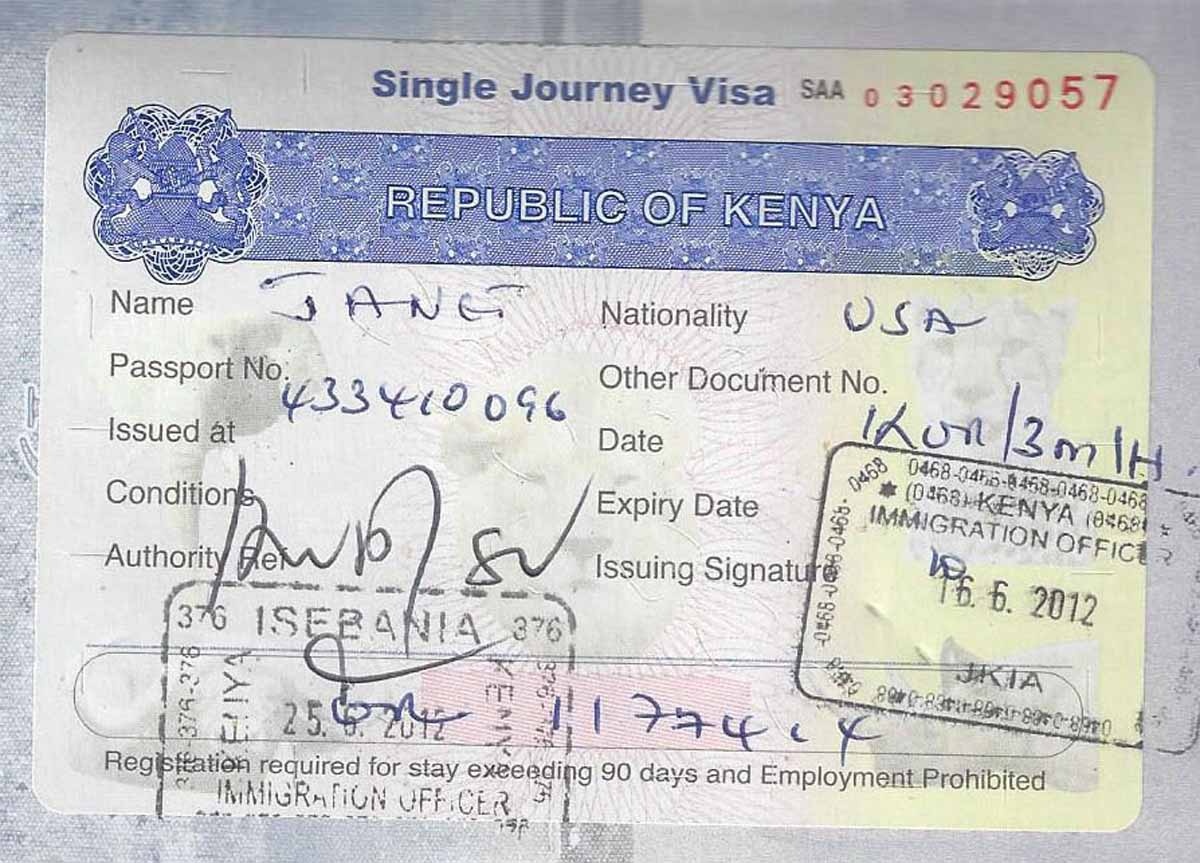 Single Journey Visa SAA 03029057
REPUBLIC OF KENYA
Name JANET
Nationality USA
Passport No. 433410096
Other Document No.
Issued at
Date
Conditions
Expiry Date
Authority Ref
Issuing Signature
0468-0468-0468-0468-0468
(0468) KENYA (0468)
IMMIGRATION OFFICER
16. 6. 2012
JKIA
376 ISEBANIA 376
25. 6. 2012
KENYA
IMMIGRATION OFFICER
Registration required for stay exceeding 90 days and Employment Prohibited